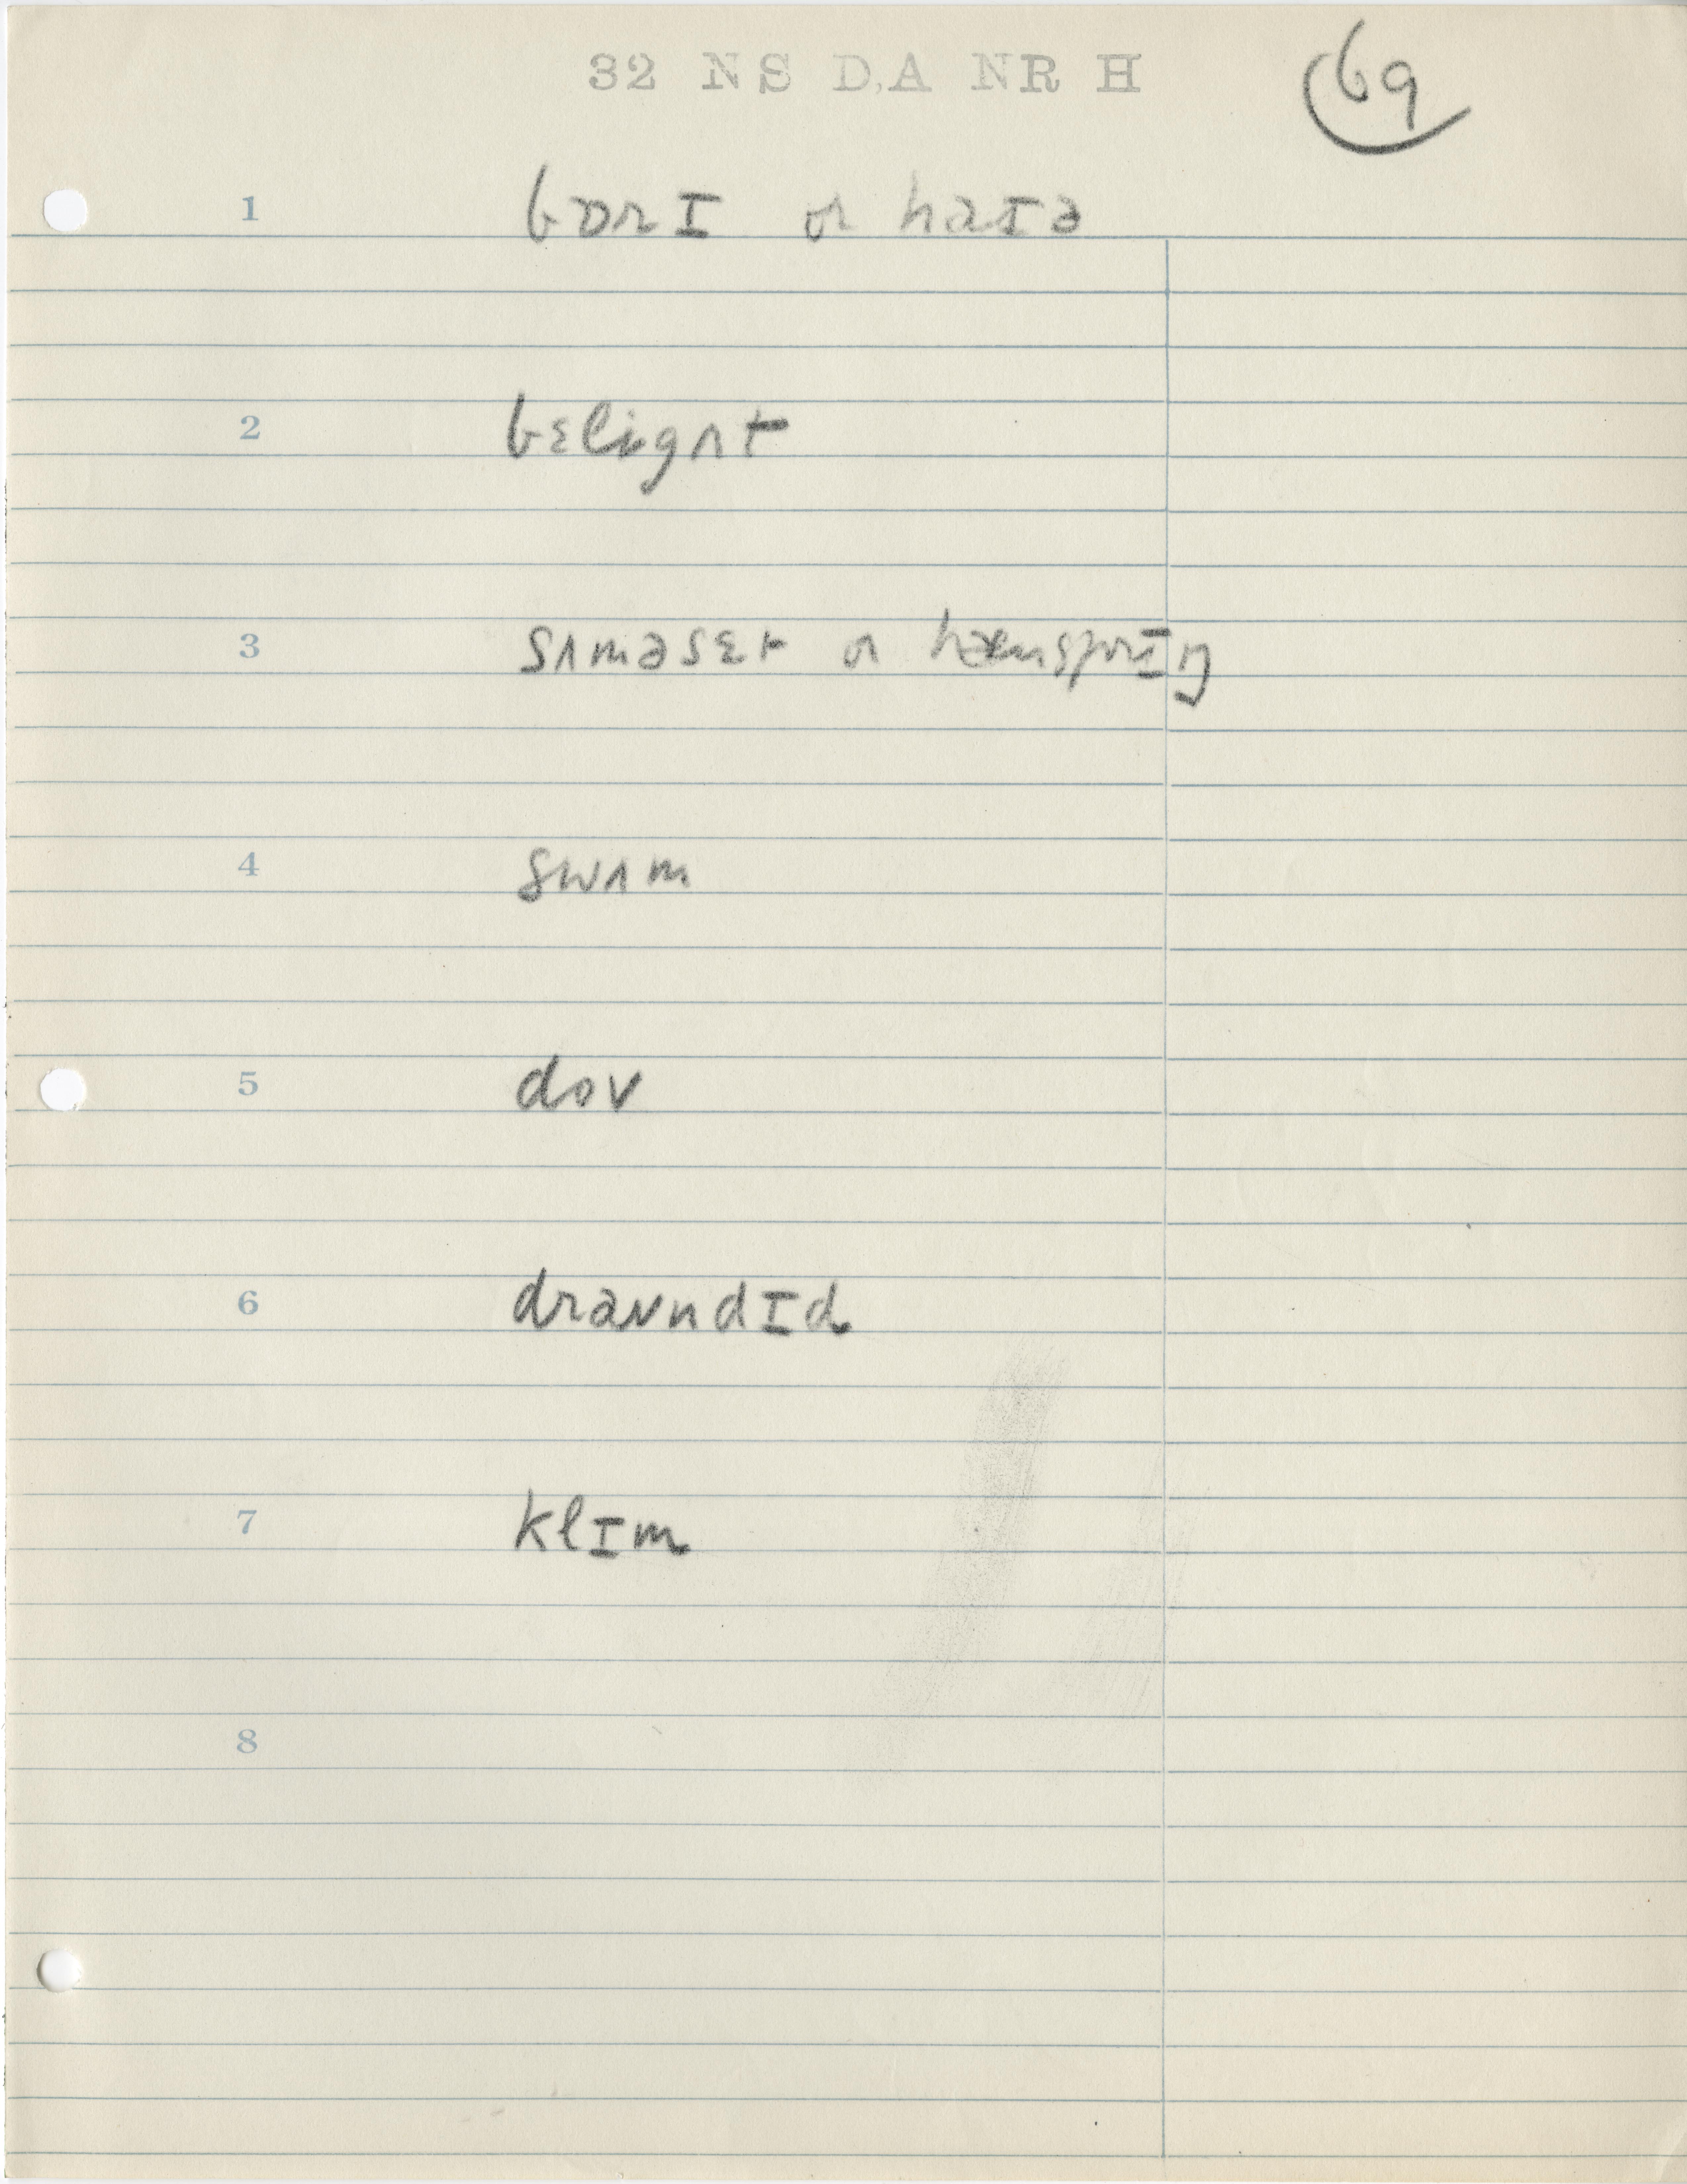 32 NS D,A NR H
69
1 bɒrɪ or haɪə
2 bɛligʌt
3 sʌməsɛt or hænsprɪŋ
4 swʌm
5 dov
6 draʊndɪd
7 klɪm
8